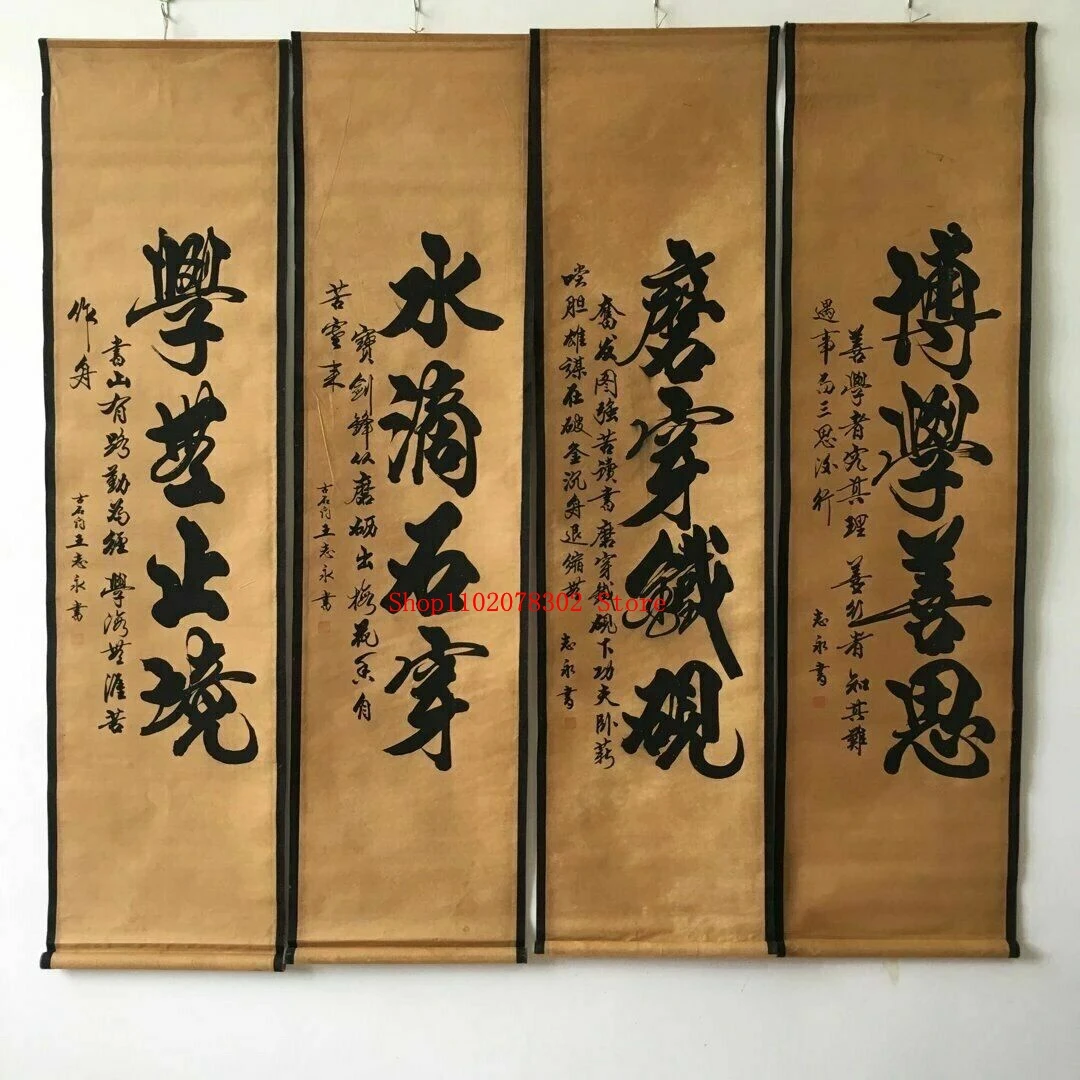 博學善思
善學者究其理 善行者知其難
遇事而三思後行
志永書
磨穿鐵硯
奮发图强苦讀書磨穿鉄硯下功夫卧薪
嚐胆雄謀在破釜沉舟退縮無
志永書
水滴石穿
寶剑鋒从磨砺出梅花香自
苦寒来
王志永書
學無止境
書山有路勤為徑 學海無涯苦
作舟
王志永書
Shop1102078302 Store